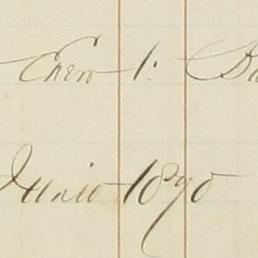 Enero 1º
Junio 1890